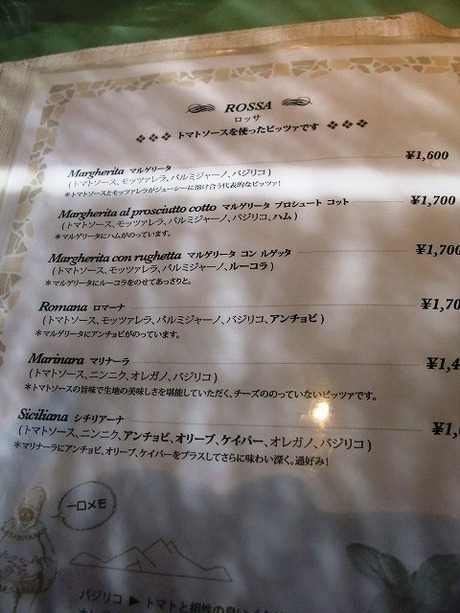 ROSSA
ロッサ
トマトソースを使ったピッツァです
Margherita マルゲリータ ¥1,600
(トマトソース、モッツァレラ、パルミジャーノ、バジリコ)
*トマトソースとモッツァレラがジューシーに溶け合う代表的なピッツァ!
Margherita al prosciutto cotto マルゲリータ プロシュート コット ¥1,700
(トマトソース、モッツァレラ、パルミジャーノ、バジリコ、ハム)
*マルゲリータにハムがのっています。
Margherita con rughetta マルゲリータ コン ルゲッタ ¥1,700
(トマトソース、モッツァレラ、パルミジャーノ、ルーコラ)
*マルゲリータにルーコラをのせてあっさりと。
Romana ロマーナ ¥1,70
(トマトソース、モッツァレラ、パルミジャーノ、バジリコ、アンチョビ)
*マルゲリータにアンチョビがのっています。
Marinara マリナーラ ¥1,4
(トマトソース、ニンニク、オレガノ、バジリコ)
*トマトソースの旨味で生地の美味しさを堪能していただく、チーズののっていないピッツァです。
Siciliana シチリアーナ ¥1,
(トマトソース、ニンニク、アンチョビ、オリーブ、ケイパー、オレガノ、バジリコ)
*マリナーラにアンチョビ、オリーブ、ケイパーをプラスしてさらに味わい深く。通好み!
一口メモ
バジリコ ▶ トマトと相性の良い